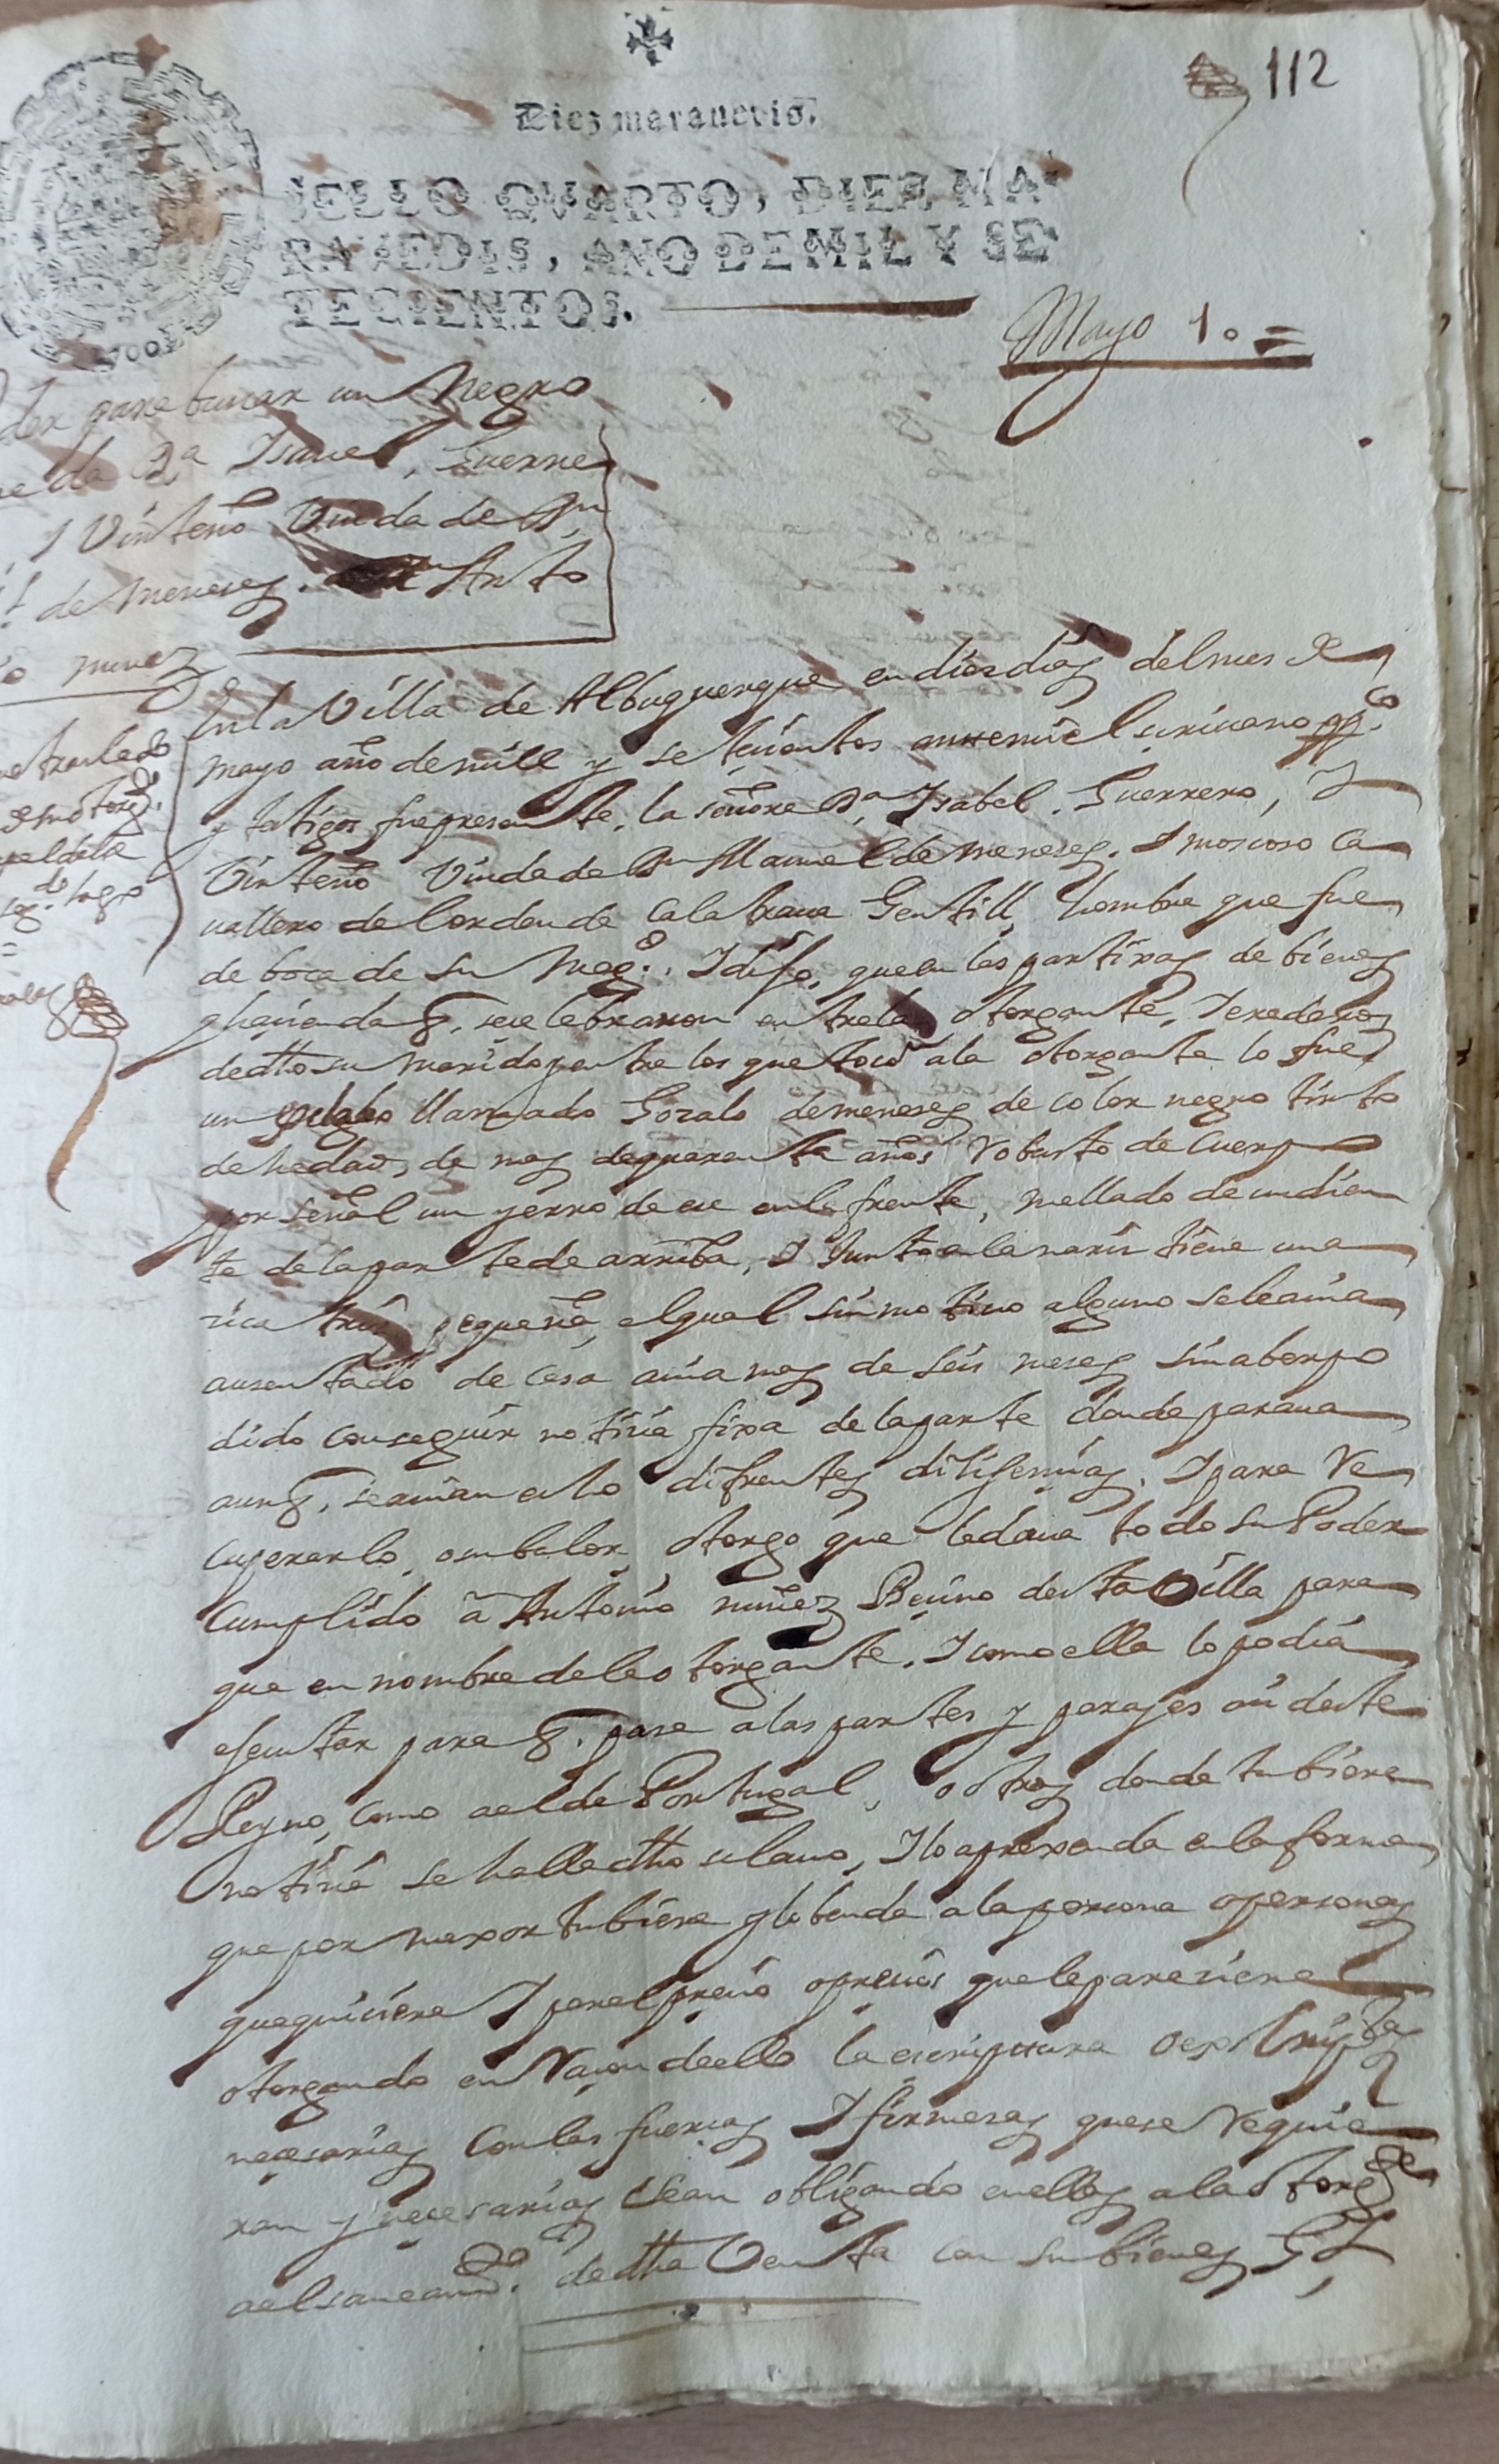 112
Diez maravedis.
SELLO QVARTO, DIEZ MA-
RAVEDIS, AÑO DE MIL Y SE
TECIENTOS.
1700
Mayo 10 =
der para buscar un Negro
que da Da Isavel, Guerre
ro, y Vinteño Viuda de Dn
de Meneses. Anto
nio nunez
traslado
de su otorgto.
sello
En la Villa de Alburquerque en dies dias del mes de
mayo año de mill y setecientos ante mi el scrivano ppco
y testigos fue presente, la señora Da, Isabel, Guerrero, Y
Vinteño Viuda de Dn Manuel de meneses, I moscoso Ca
uallero de l orden de Calatraua Gentill hombre que fue
de boca de su Magd. I dijo, que en las partixas de bienes
y hacienda q. se celebraron entre la otorgante, I erederos
de dtto su marido, entre los que toco a la otorgante lo fue
un esclabo llamado Gozalo de meneses de color negro tinto
de hedad, de mas de quarenta años Robusto de Cuerpo
por señal un yerro de ese en la frente, mellado de un dien
te de la parte de arriba, I Junto a la naris tiene una
sicatris pequeña, el qual sin motivo alguno se le auia
ausentado de casa auia mas de seis meses sin aber po
dido conseguir noticia fixa de la parte donde paraua
aunq, se auian echo difrentes dilijencias, I para Re
cuperarlo, o su balor, otorgo que le daua todo su Poder
Cumplido a Antonio nuñez Becino desta Villa para
que en nombre de la otorgante, I como ella lo podia
ejecutar para q. pase a las partes y parajes asi deste
Reyno, como a el de Portugal, o otras donde tubiere
noticia se halle dtto sclauo, I lo aprexenda en la forma
que por mexor tubiere y lo benda a la persona o personas
que quisiere I por el precio o precios que le pareciere
otorgando en Racon de ello la escriptura o escripttas
necesarias con las fuercas I firmesas que se Requie
ran y necesarias sean obligando en ellas a la otorgte
a el saneamto. de dtta Venta con sus bienes